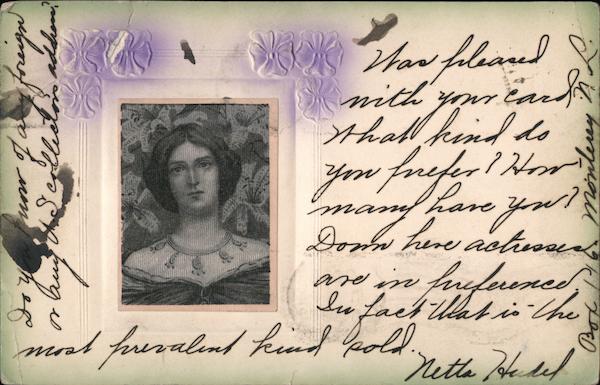 Was pleased
with your card.
What kind do
you prefer? How
many have you?
Down here actresses
are in preference.
In fact that is the
most prevalent kind sold.
Netta
Do you know of any foreign
or any U S collectors address?
Box Monterey